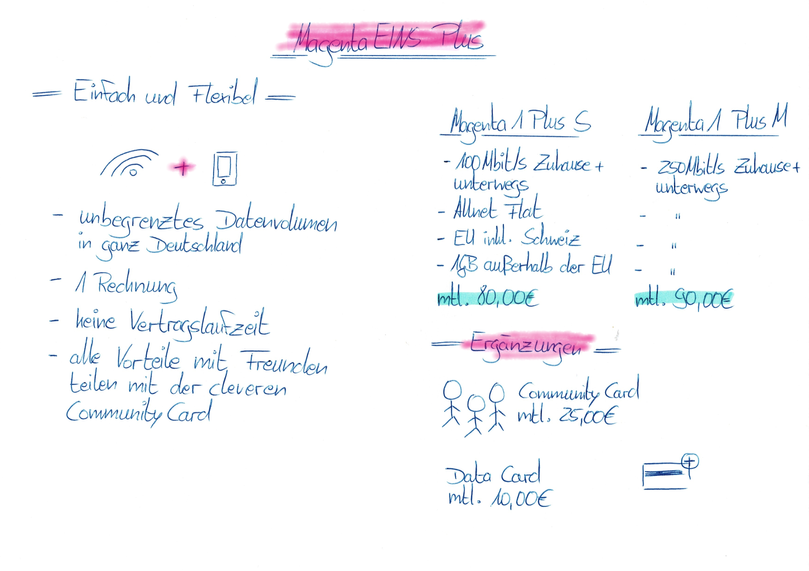 Magenta EINS Plus
= Einfach und Flexibel =
+
- unbegrenztes Datenvolumen
in ganz Deutschland
- 1 Rechnung
- keine Vertragslaufzeit
- alle Vorteile mit Freunden
teilen mit der cleveren
Community Card
Magenta 1 Plus S
- 100Mbit/s Zuhause +
unterwegs
- Allnet Flat
- EU inkl. Schweiz
- 1GB außerhalb der EU
mtl. 80,00€
Magenta 1 Plus M
- 250Mbit/s Zuhause +
unterwegs
- "
- "
- "
mtl. 90,00€
= Ergänzungen =
Community Card
mtl. 25,00€
Data Card
mtl. 10,00€
+